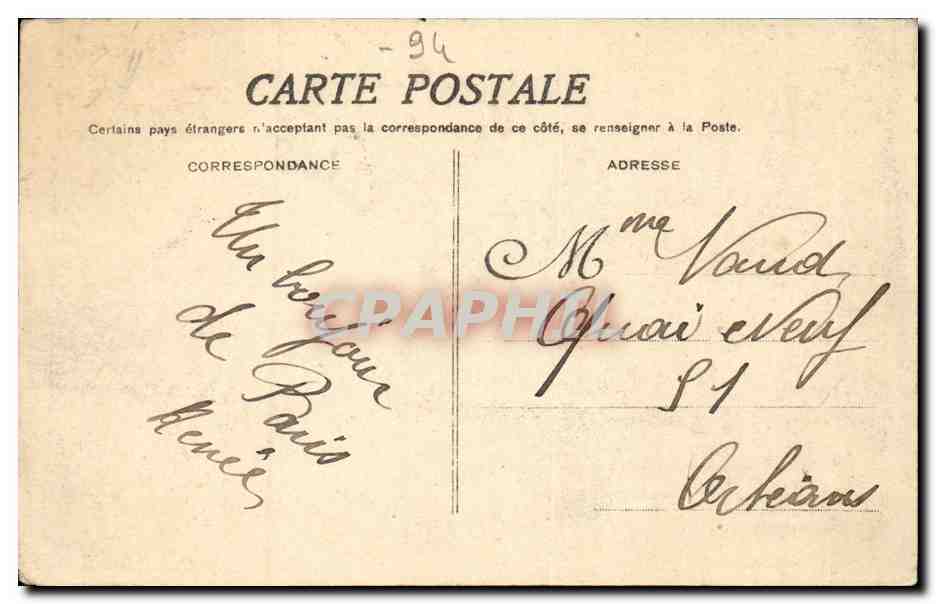 - 94
CARTE POSTALE
Certains pays étrangers n'acceptant pas la correspondance de ce côté, se renseigner à la Poste.
CORRESPONDANCE
Un bonjour
de Paris
Renée
ADRESSE
Mme Naud
Quai Neuf
51
Orléans
CPAPHIL